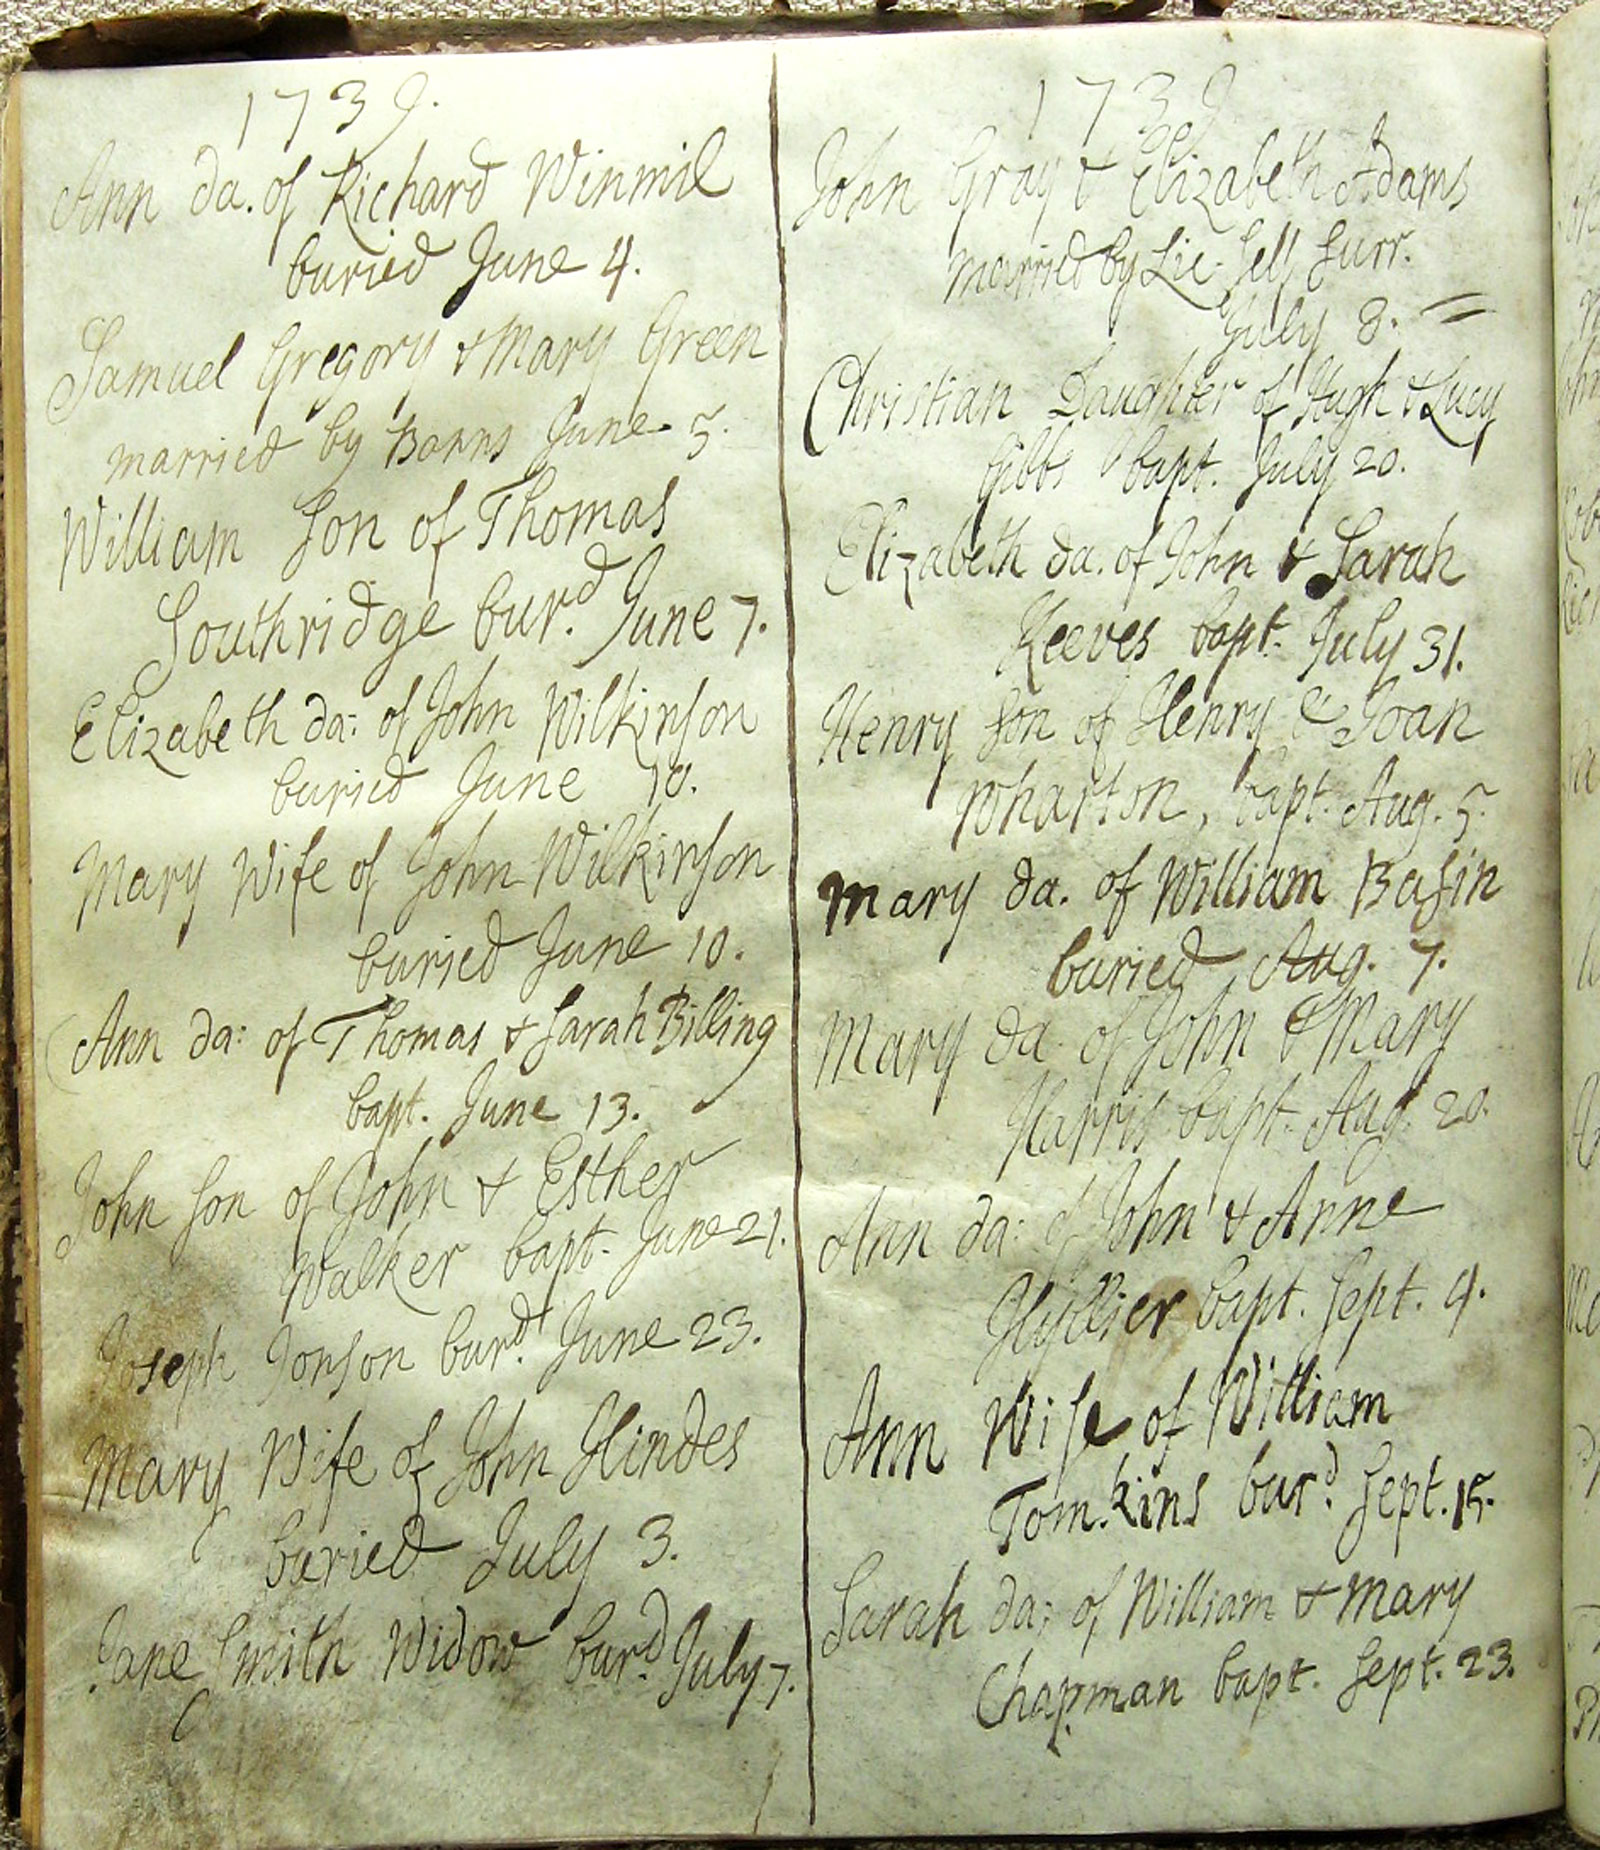 1739.
Ann da. of Richard Winmil
buried June 4.
Samuel Gregory & Mary Green
married by Banns June 5.
William Son of Thomas
Southridge bur.d June 7.
Elizabeth da: of John Wilkinson
buried June 10.
Mary Wife of John Wilkinson
buried June 10.
Ann da: of Thomas & Sarah Billing
bapt. June 13.
John Son of John & Esther
Walker bapt. June 21.
Joseph Jonson bur.d June 23.
Mary Wife of John Hindes
buried July 3.
Jane Smith Widow bur.d July 7.
1739
John Gray & Elizabeth Adams
married by Lic. Self Surr.
July 8.
Christian Daughter of Hugh & Lucy
Gibbs bapt. July 20.
Elizabeth da. of John & Sarah
Reeves bapt. July 31.
Henry Son of Henry & Joan
Wharton, bapt. Aug. 5.
Mary da. of William Basin
buried Aug. 7.
Mary da. of John & Mary
Harris bapt. Aug. 20.
Ann da: of John & Anne
Hyllier bapt. Sept. 4.
Ann Wife of William
Tomkins bur.d Sept. 15.
Sarah da; of William & Mary
Chapman bapt. Sept. 23.